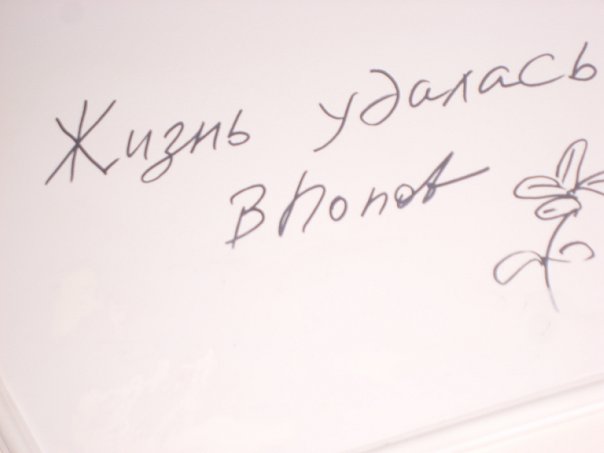 Жизнь удалась
В Попов